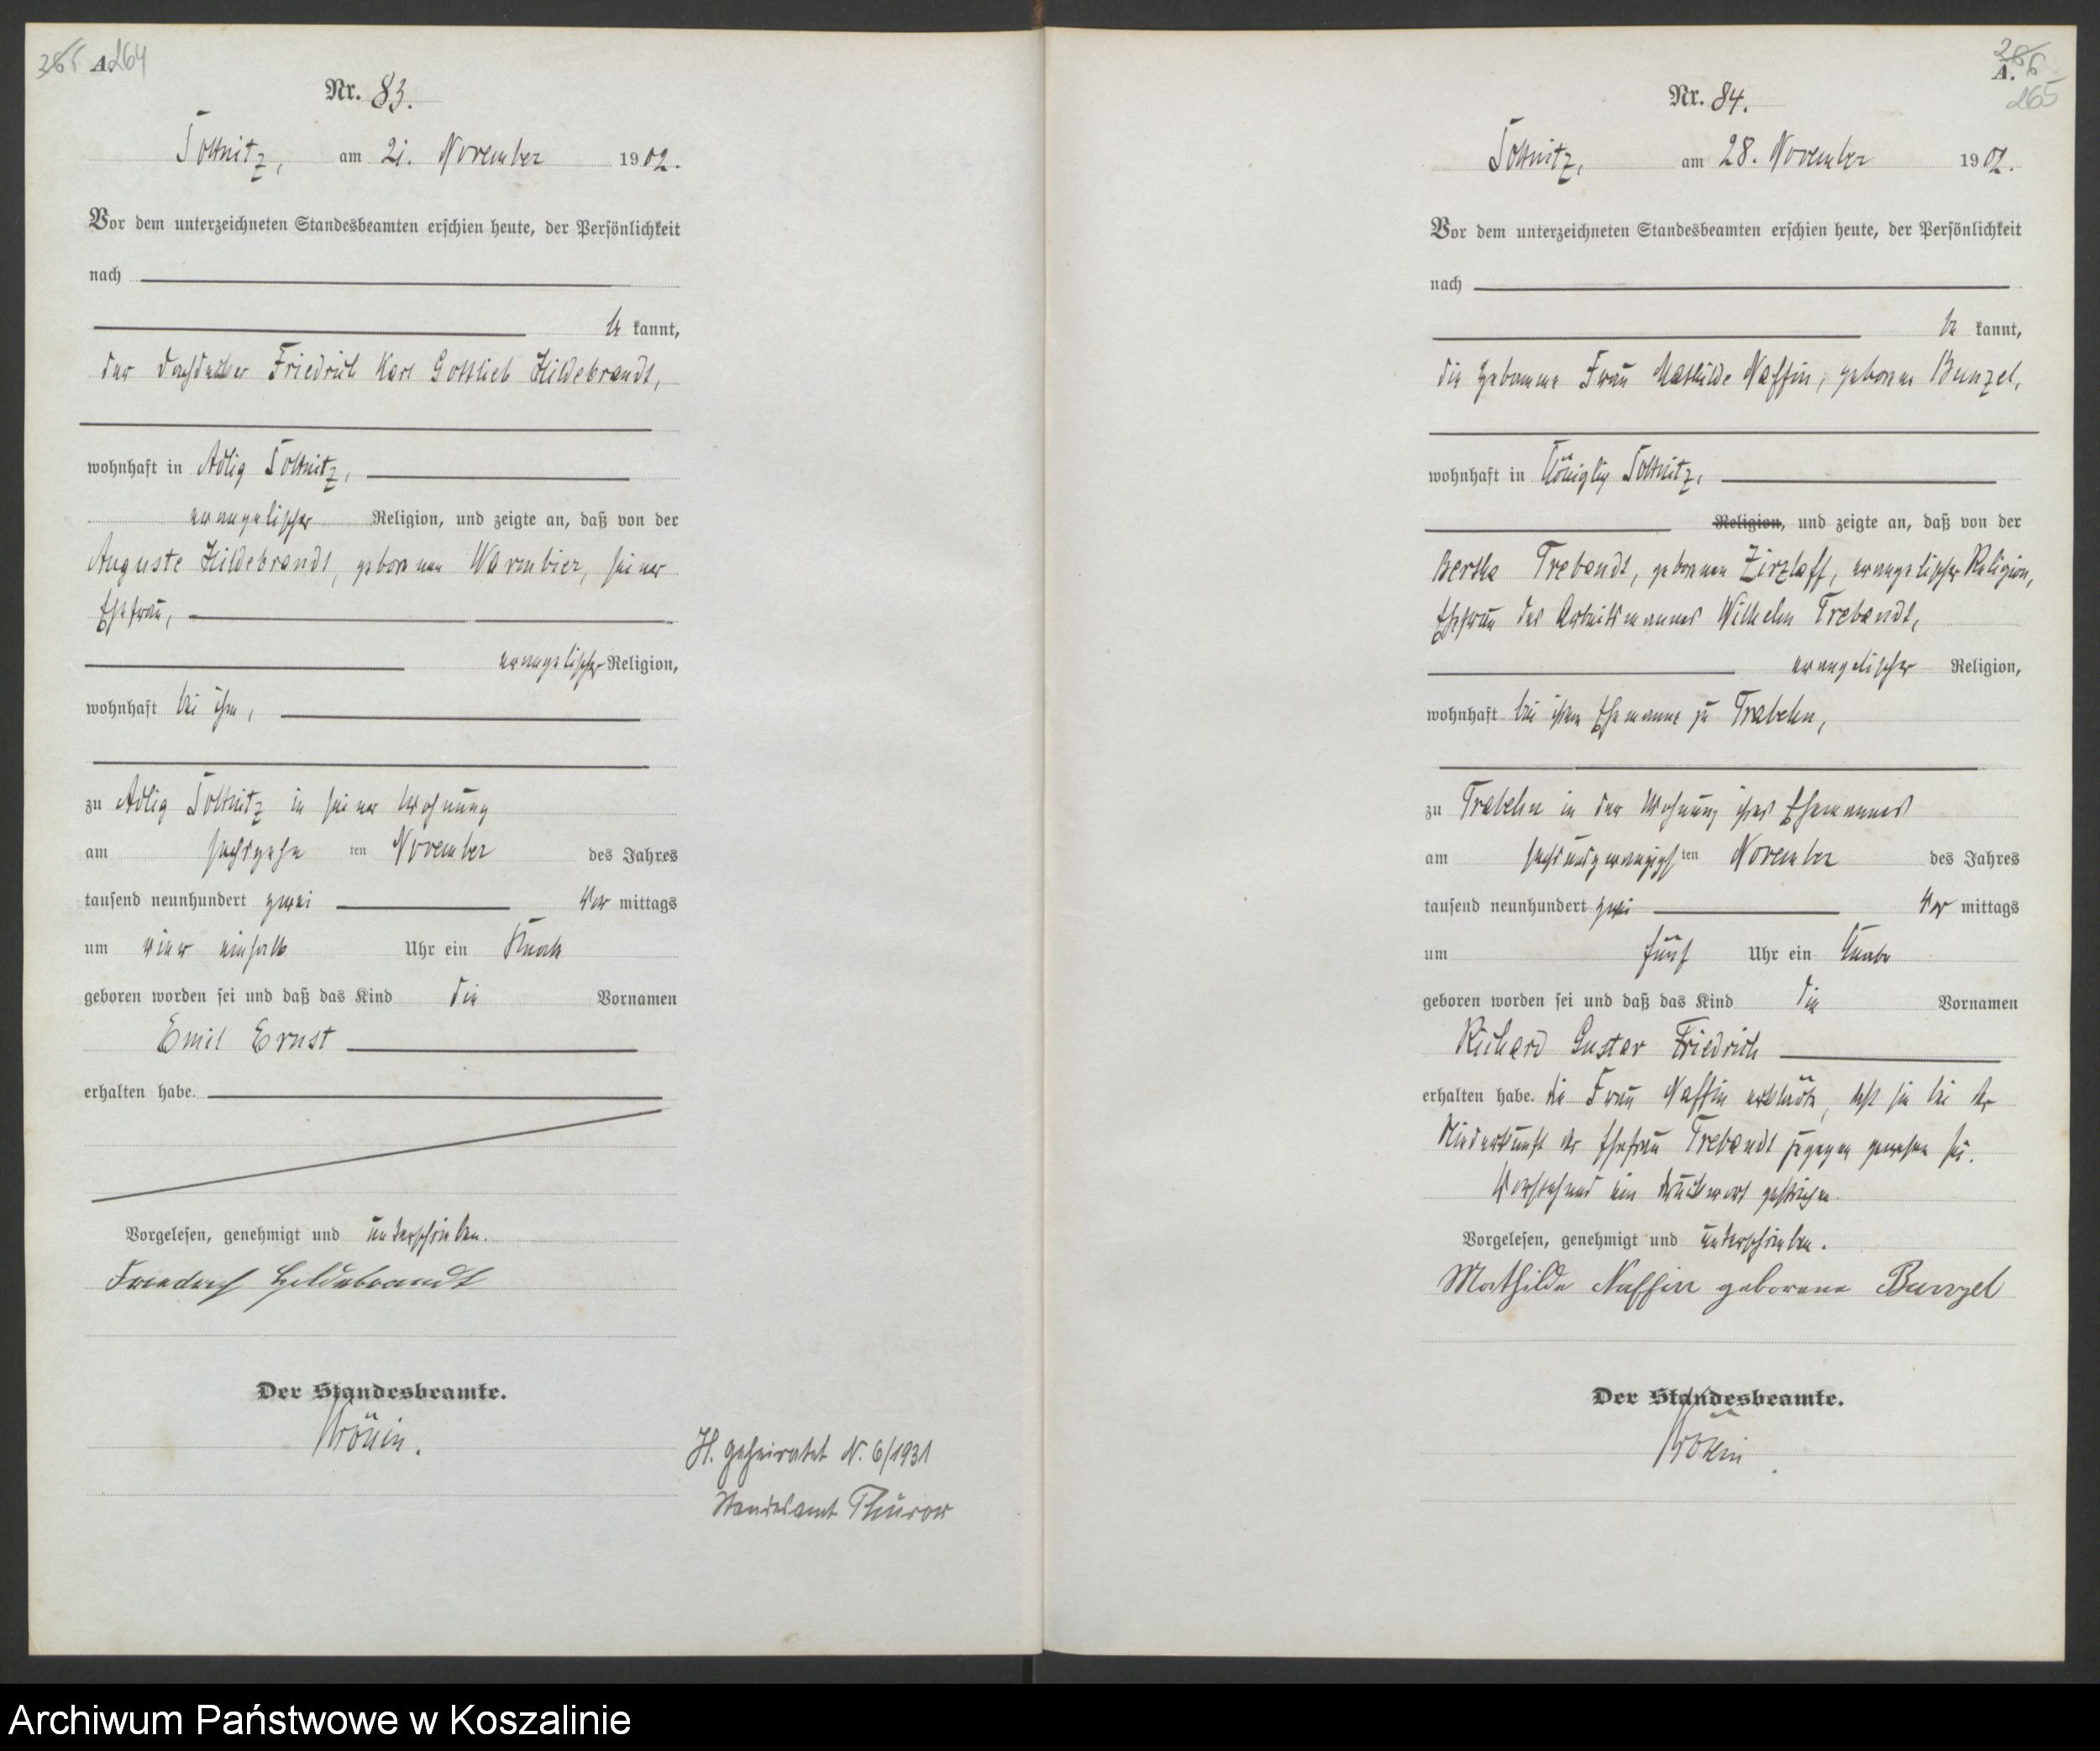 265 A. 264
Nr. 83.
Soltnitz, am 21. November 1902.
Vor dem unterzeichneten Standesbeamten erschien heute, der Persönlichkeit
nach
be kannt,
der Dachdecker Friedrich Karl Gottlieb Hildebrandt,
wohnhaft in Adlig Soltnitz,
evangelischer Religion, und zeigte an, daß von der
Auguste Hildebrandt, geborenen Warmbier, seiner
Ehefrau,
evangelischer Religion,
wohnhaft bei ihm,
zu Adlig Soltnitz in seiner Wohnung
am sechszehn ten November des Jahres
tausend neunhundert zwei Vor mittags
um vier einhalb Uhr ein Knabe
geboren worden sei und daß das Kind die Vornamen
Emil Ernst
erhalten habe.
Vorgelesen, genehmigt und unterschrieben.
Friedrich Hildebrandt
Der Standesbeamte.
H. geheiratet N. 6/1931
Standesamt Thurow
266
A.
265
Nr. 84.
Soltnitz, am 28. November 1902.
Vor dem unterzeichneten Standesbeamten erschien heute, der Persönlichkeit
nach
be kannt,
die Hebamme Frau Mathilde Naffin, geborene Bunzel,
wohnhaft in Königlich Soltnitz,
Religion, und zeigte an, daß von der
Bertha Trebandt, geborenen Zirzlaff, evangelischer Religion,
Ehefrau des Arbeitsmannes Wilhelm Trebandt,
evangelischer Religion,
wohnhaft bei ihrem Ehemanne zu Trabehn,
zu Trabehn in der Wohnung ihres Ehemannes
am sechsundzwanzigsten November des Jahres
tausend neunhundert zwei Vor mittags
um fünf Uhr ein Knabe
geboren worden sei und daß das Kind die Vornamen
Richard Gustav Friedrich
erhalten habe. Die Frau Naffin erklärte, daß sie bei der
Niederkunft der Ehefrau Trebandt zugegen gewesen sei.
Vorstehend ein Druckwort gestrichen.
Vorgelesen, genehmigt und unterschrieben.
Mathilde Naffin geborene Bunzel
Der Standesbeamte.
Archiwum Państwowe w Koszalinie